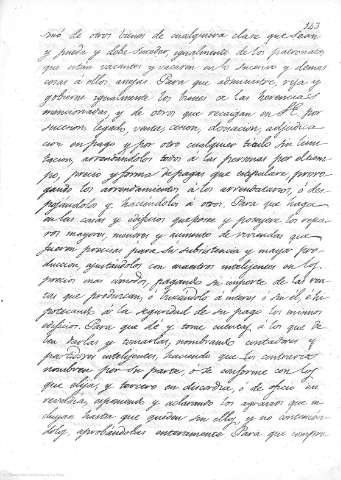 243
mó de otros bienes de cualquiera clase que sean
y pueda y deba suceder, igualmente de los patronatos
que están vacantes y vacaren en lo sucesivo y demas
cosas á ellos anejas. Para que administre, rija y
gobierne igualmente los bienes de las herencias
mencionadas, y de otros que recaigan en por
sucesion, legado, venta, cesion, donacion, adjudica
cion en pago y por otro cualquier titulo sin limi
tacion, arrendandolos todos á las personas por el tiem
po, precio y forma de pagas que estipulare, prorro
gando los arrendamientos á los arrendatarios, ó des
pojandolos y haciendolos á otros. Para que haga
en las casas y edificios que posee y poseyere los repa
ros mayores, menores y aumento de viviendas que
fueren precisas para su subsistencia y mayor pro
duccion, ajustandolos con maestros inteligentes en los
precios mas comodos, pagando su importe de las ren
tas que produzcan, ó buscandolo á interes ó sin él, é hi
potecando á la seguridad de su pago los mismos
edificios. Para que dé y tome cuentas á los que de
ban darlas y tomarlas, nombrando contadores y
partidores inteligentes, haciendo que los contrarios
nombren por su parte, ó se conforme con los
que elija, y tercero en discordia, ó de oficio en
rebeldia, esponiendo y aclarando los agravios que in
cluyan hasta que queden sin ellos, y no contenien
dolos, aprobandolas enteramente. Para que compre